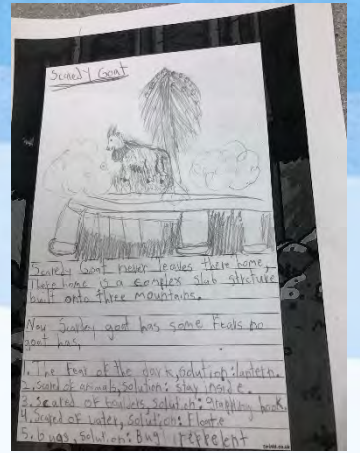 Scaredy Goat
Scaredy Goat never leaves there home,
There home is a complex slab strcture
built onto three mountains.
Now Scardey goat has some fears no
goat has,
1. The fear of the dark, solution: lantern.
2, scared of animals, solution: stay inside.
3. scared of solution: graphling hook.
4. Scared of water, solution: Floate
5. bugs, solution: Bug repelent